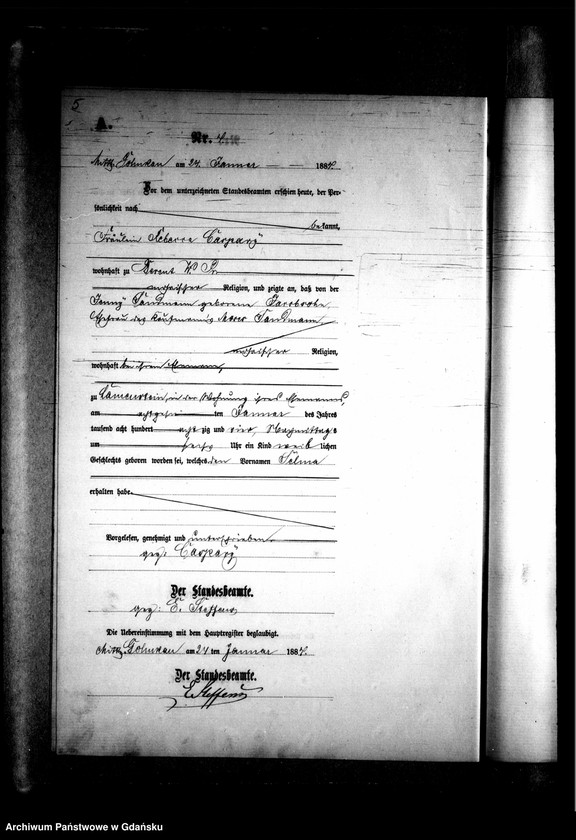 5
A.
Nr. 4.
Mittel Golmkau am 24 Januar 1884.
Vor dem unterzeichneten Standesbeamten erschien heute, der Per-
sönlichkeit nach
bekannt,
Fräulein Caspary
wohnhaft zu Berent W Pr
mosaischer Religion, und zeigte an, daß von der
Jenny Sandmann geborene
Ehefrau des Kaufmanns Sandmann
mosaischer Religion,
wohnhaft bei ihrem Ehemann,
zu in der Wohnung ihres Ehemannes,
am achtzehn ten Januar des Jahres
tausend acht hundert acht zig und vier, Nachmittags
um sechs Uhr ein Kind weib lichen
Geschlechts geboren worden sei, welches den Vornamen Selma
erhalten habe.
Vorgelesen, genehmigt und unterschrieben.
gez: Caspary
Der Standesbeamte.
gez: E. Steffens
Die Uebereinstimmung mit dem Hauptregister beglaubigt.
Mittel Golmkau am 24 ten Januar 1884.
Der Standesbeamte.
E. Steffens
Archiwum Państwowe w Gdańsku